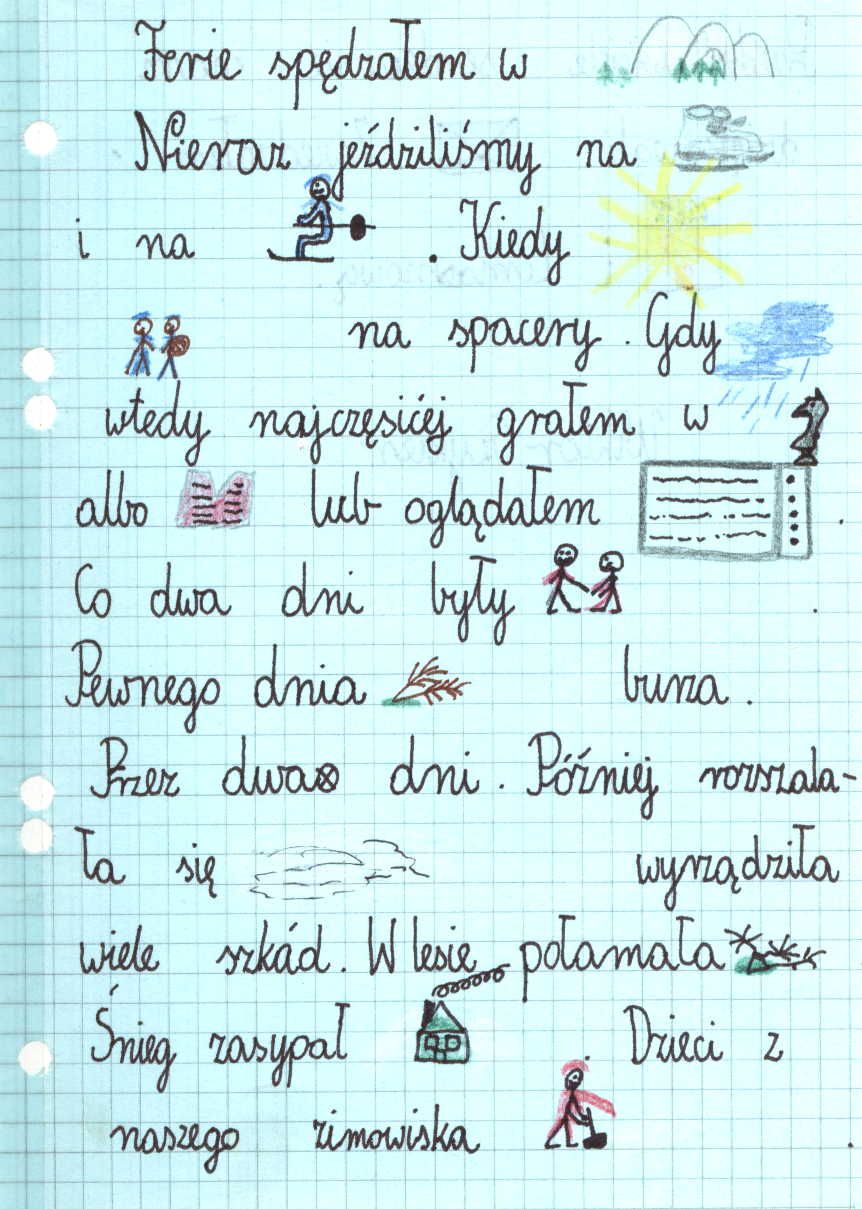 Ferie spędzałem w
Nieraz jeździliśmy na
i na . Kiedy
na spacery. Gdy
wtedy najczęsićej grałem w
albo lub oglądałem .
Co dwa dni były .
Pewnego dnia burza.
Przez dwa dni. Później rozszala-
ła się wyrządziła
wiele szkód. W lesie połamała
Śnieg zasypał . Dzieci z
naszego zimowiska .